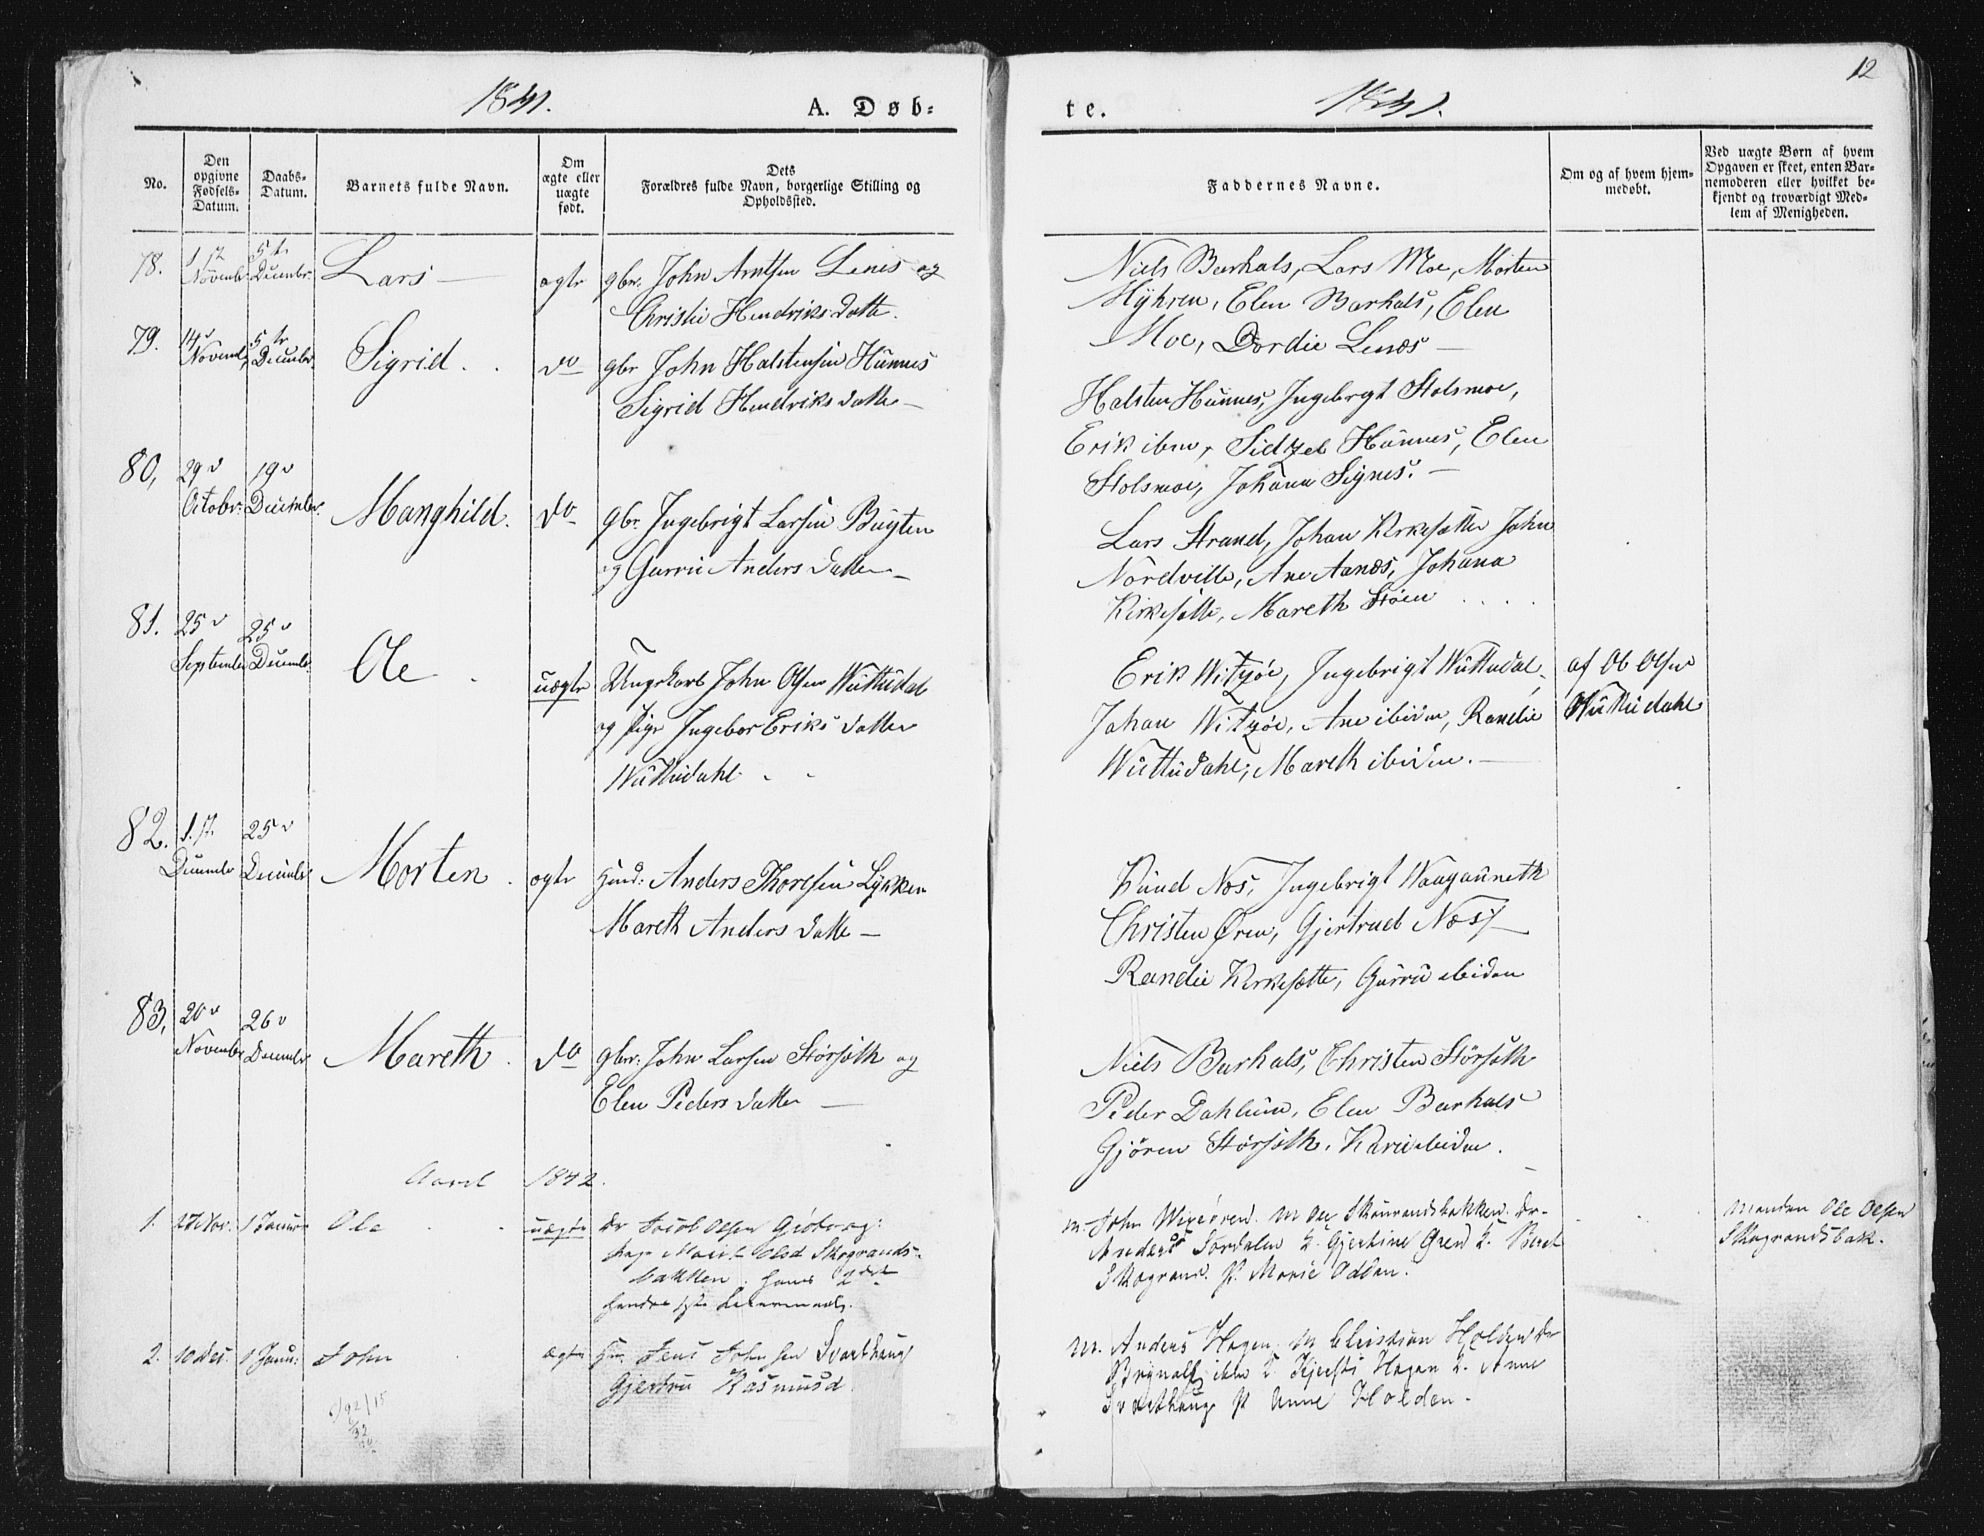 1841.
A. Døb=
te.
1841.
12
No.
Den
opgivne
Fødsels-
Datum.
Daabs-
Datum.
Barnets fulde Navn.
Om
ægte eller
uægte
født.
Dets
Forældres fulde Navn, borgerlige Stilling og
Opholdssted.
Faddernes Navne.
Om og af hvem hjem-
medøbt.
Ved uægte Børn af hvem
Opgaven er skeet, enten Bar-
nemoderen eller hvilket be-
kjendt og troværdigt Med-
lem af Menigheden.
78.
1st
Novemb.
5t
Decembr.
Lars
ægte
gbr. John Arntsen Lenes og
Christie Hendriks datte.
Niels Barhals, Lars Moe, Morten
Myhren, Elen Barhals, Elen
Moe, Dordie Lenæs
79.
14d
Novemb.
5te
Decembr.
Sigrid.
do
gbr John Halstensen Hunnes
Sigrid Hendriks datte
Halsten Hunnes, Ingebrgt Stolsmoe,
Erik ibm, Sidzel Hunnes, Elen
Stolsmoe, Johana Signes.
80,
29d
Octobr.
19d
Decembr.
Manghild.
do
gbr. Ingebrigt Larsen Bugten
og Gurru Anders datter
Lars Strand, Johan Kirkesætte John
Nordville, Ane Aanæs, Johana
Kirkesætte, Mareth Støen
81.
25d
September
25d
Decembr.
Ole
uægte
Ungekarl John Olsen Wuttudal
og pige Ingebor Eriks datter
Wuttudahl
Erik Witzøe, Ingebrigt Wuttudal
Johan Witzøe, Ane ibidm, Randie
Wuttudahl, Mareth ibidm.
af Ol Olsen
Wuttudahl
82.
1.st
Decembr
25d
Decembr
Morten
ægte
Huusmd: Anders Thoresen Lykken
Mareth Anders datte
Knud Næs, Ingebrigt Waagauneth
Christen Ören, Gjertrud Næs
Randie Kirkesætte, Gurru ibidm
83,
20d
Novembr
26d
Decembr
Mareth
do
gbr: John Larsen Storsøth og
Elen Peders datter
Niels Barhals, Christen Störsøth
Peder Dahlum, Elen Barhals
Gjören Störsøth, Karu ibidm.
Aaret 1842.
1.
27 Nov.
1 Januar
Ole
uægte
Dr Jacob Olsen Gjøto og:
Pige Marit Olsd Skogrands-
bakken. Hans 2det
hendes 1ste Leiermaal.
M John Wixören. M Ole Skaurandsbakken. Dr
Anders Sordalen K. Gjertine Gren K. Beret
Skogrand. P. Marie Odden.
Manden Ole Olsen
Skogrands bak.
2.
10 Des.
1 Janu:
John
ægte
Hm. Jens Johnsen Svarthaug
Gjertru Rasmusd.
M. Anders Hagen. M Christian Holden Dr
Brynall ibm K. Kjersti Hagen K. Anne
Svarthaug P. Anne Holden.